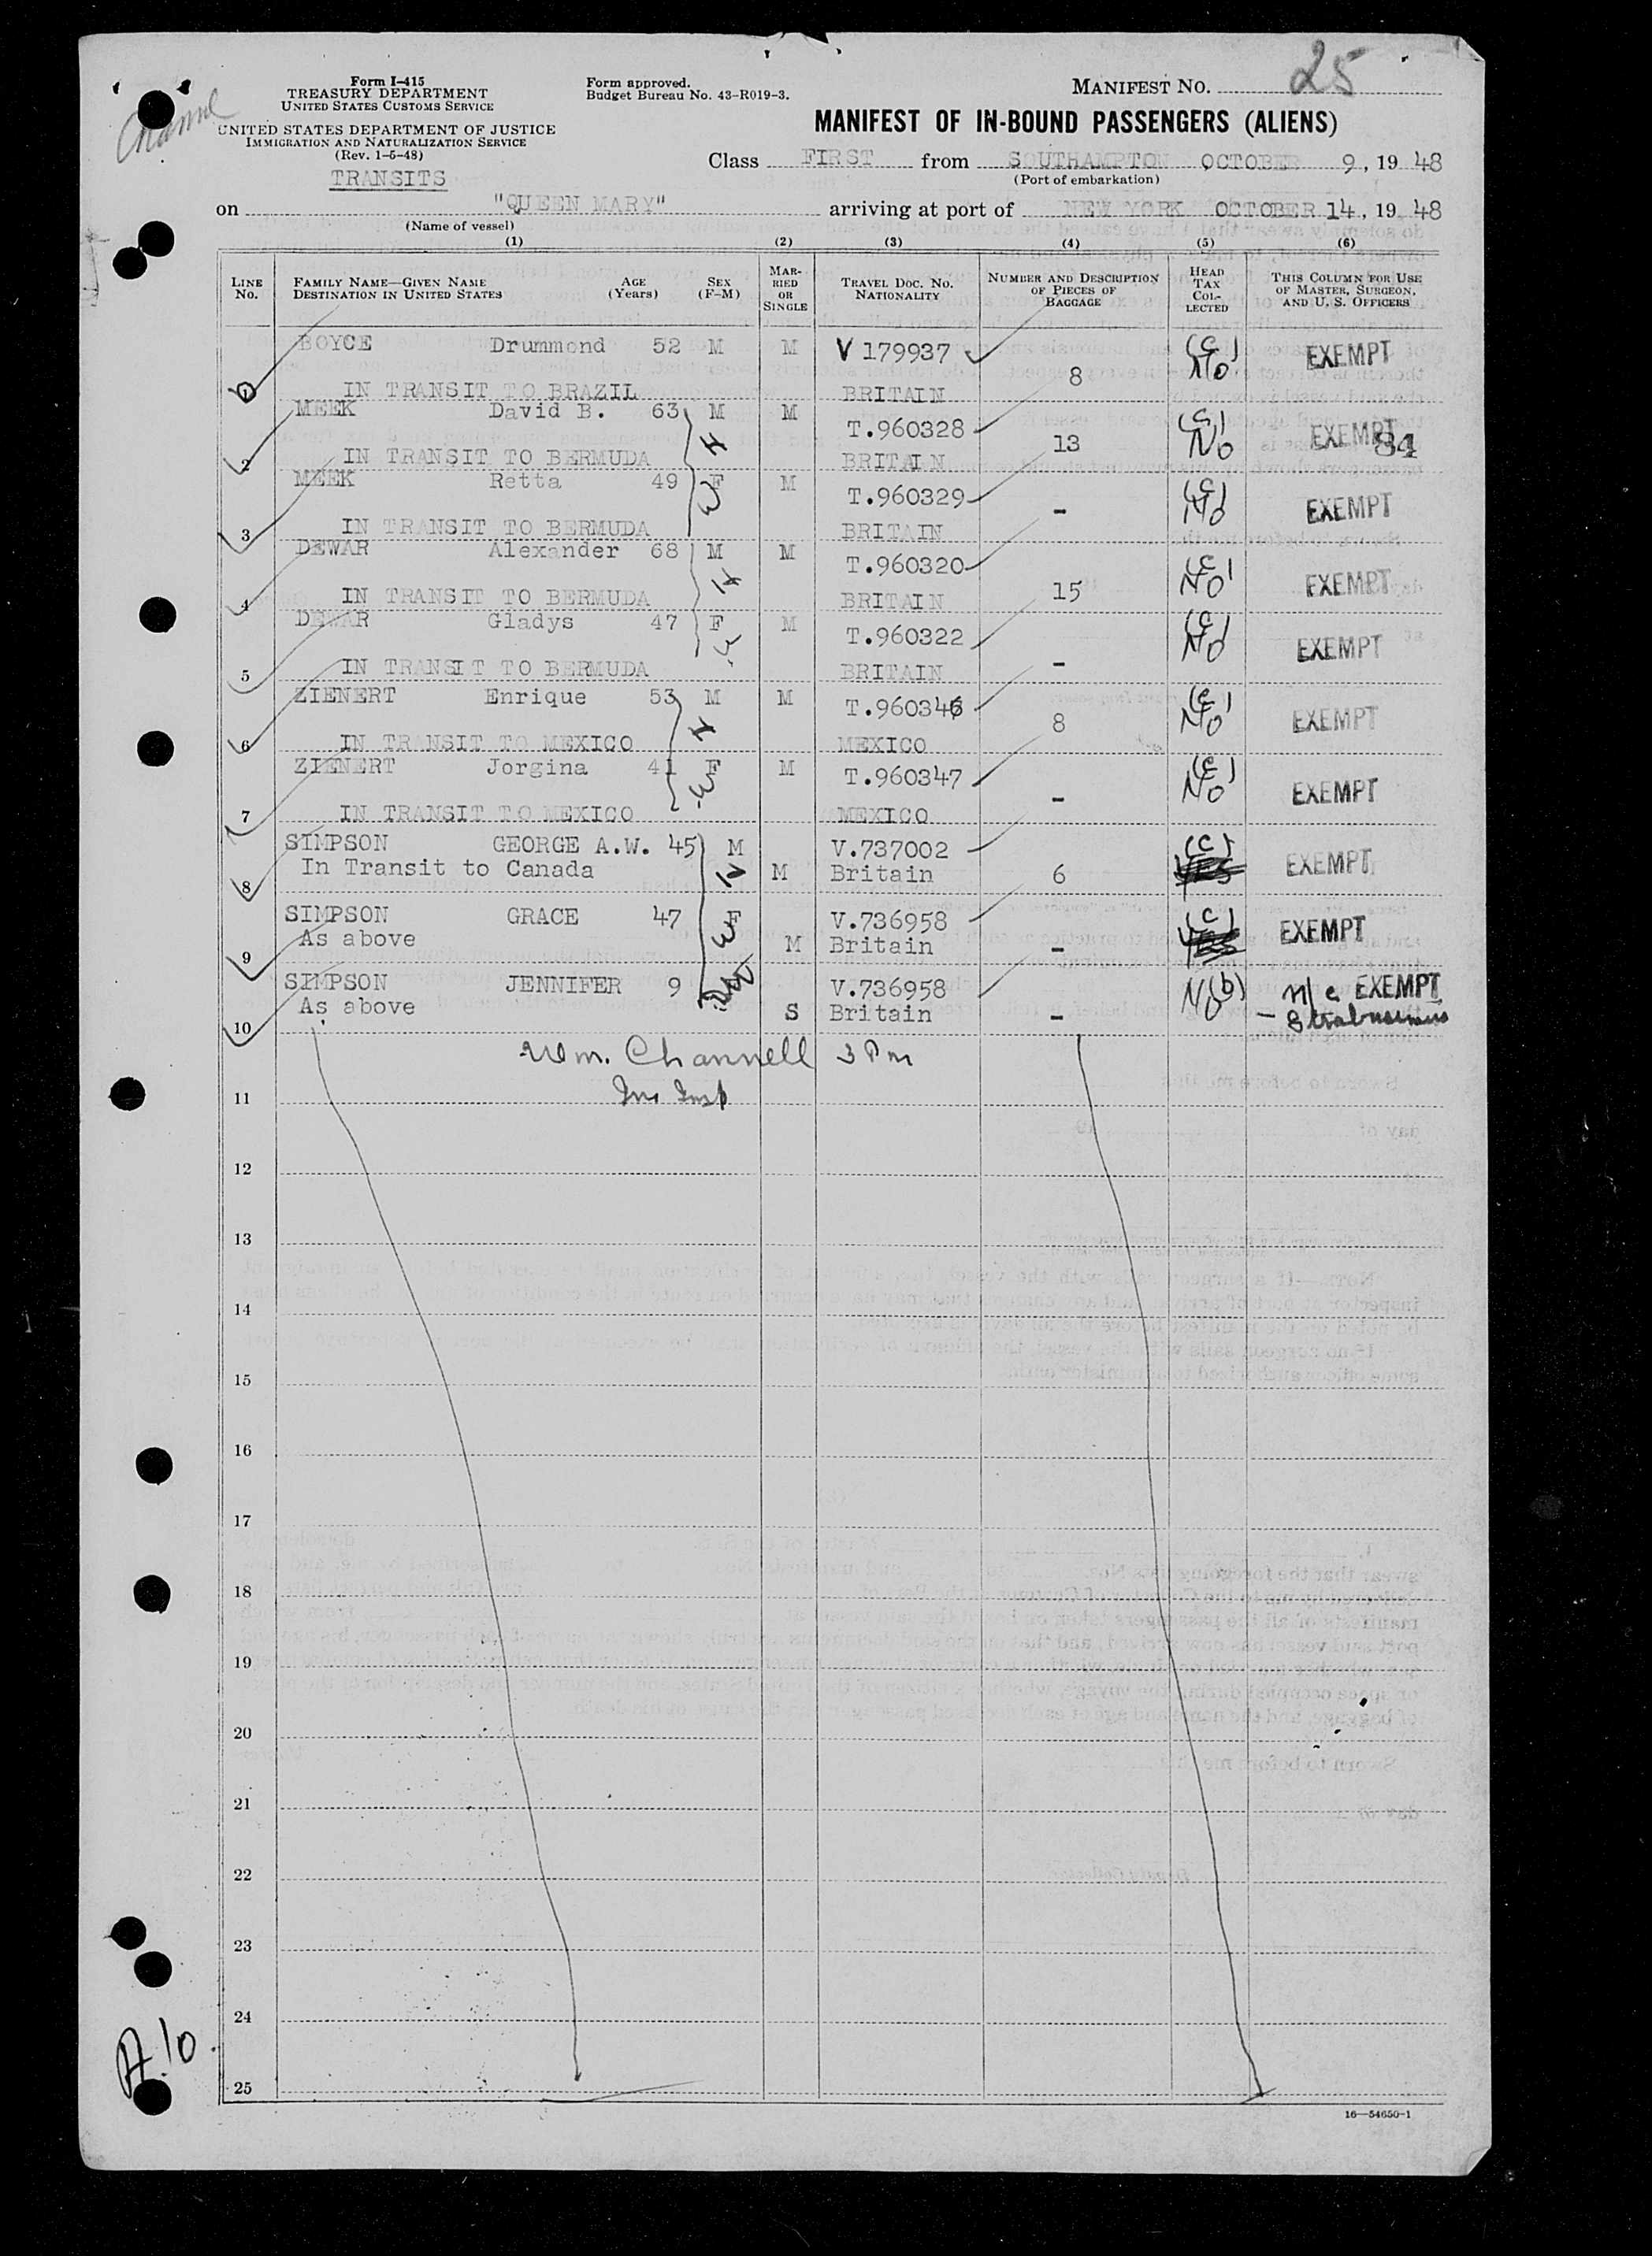 Form I-415
TREASURY DEPARTMENT
UNITED STATES CUSTOMS SERVICE
UNITED STATES DEPARTMENT OF JUSTICE
IMMIGRATION AND NATURALIZATION SERVICE
(Rev. 1-5-48)
TRANSITS
Form approved.
Budget Bureau No. 43-R019-3.
MANIFEST NO. 25
MANIFEST OF IN-BOUND PASSENGERS (ALIENS)
Class FIRST from SOUTHAMPTON OCTOBER 9, 19 48
(Port of embarkation)
on "QUEEN MARY" arriving at port of NEW YORK OCTOBER 14, 19 48
(Name of vessel)
(1) (2) (3) (4) (5) (6)
LINE No. FAMILY NAME—GIVEN NAME DESTINATION IN UNITED STATES AGE (Years) SEX (F-M) MARRIED OR SINGLE TRAVEL DOC. NO. NATIONALITY NUMBER AND DESCRIPTION OF PIECES OF BAGGAGE HEAD TAX COLLECTED THIS COLUMN FOR USE OF MASTER, SURGEON, AND U. S. OFFICERS
BOYCE Drummond 52 M M V 179937 8 (c) No EXEMPT
1 IN TRANSIT TO BRAZIL BRITAIN
MEEK David B. 63 M H M T.960328 13 (c) No EXEMPT 84
2 IN TRANSIT TO BERMUDA BRITAIN
MEEK Retta 49 F W M T.960329 - (c) No EXEMPT
3 IN TRANSIT TO BERMUDA BRITAIN
DEWAR Alexander 68 M H M T.960320 15 (c) No EXEMPT
4 IN TRANSIT TO BERMUDA BRITAIN
DEWAR Gladys 47 F W M T.960322 - (c) No EXEMPT
5 IN TRANSIT TO BERMUDA BRITAIN
ZIENERT Enrique 53 M H M T.960346 8 (c) No EXEMPT
6 IN TRANSIT TO MEXICO MEXICO
ZIENERT Jorgina 41 F W M T.960347 - (c) No EXEMPT
7 IN TRANSIT TO MEXICO MEXICO
SIMPSON GEORGE A.W. 45 M V.737002 (c) EXEMPT
8 In Transit to Canada M Britain 6 YES
SIMPSON GRACE 47 W F V.736958 (c) EXEMPT
9 As above M Britain - YES
SIMPSON JENNIFER 9 V.736958 No (b) n/c EXEMPT
10 As above S Britain - - Strabismus
Wm. Channell 3 Pm
Im Insp
11
12
13
14
15
16
17
18
19
20
21
22
23
24
25
A.10
16—54650-1